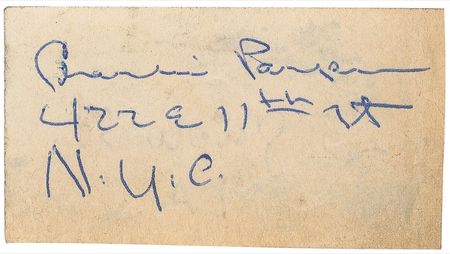 Charlie Parker
422 E 11th St
N.Y.C.